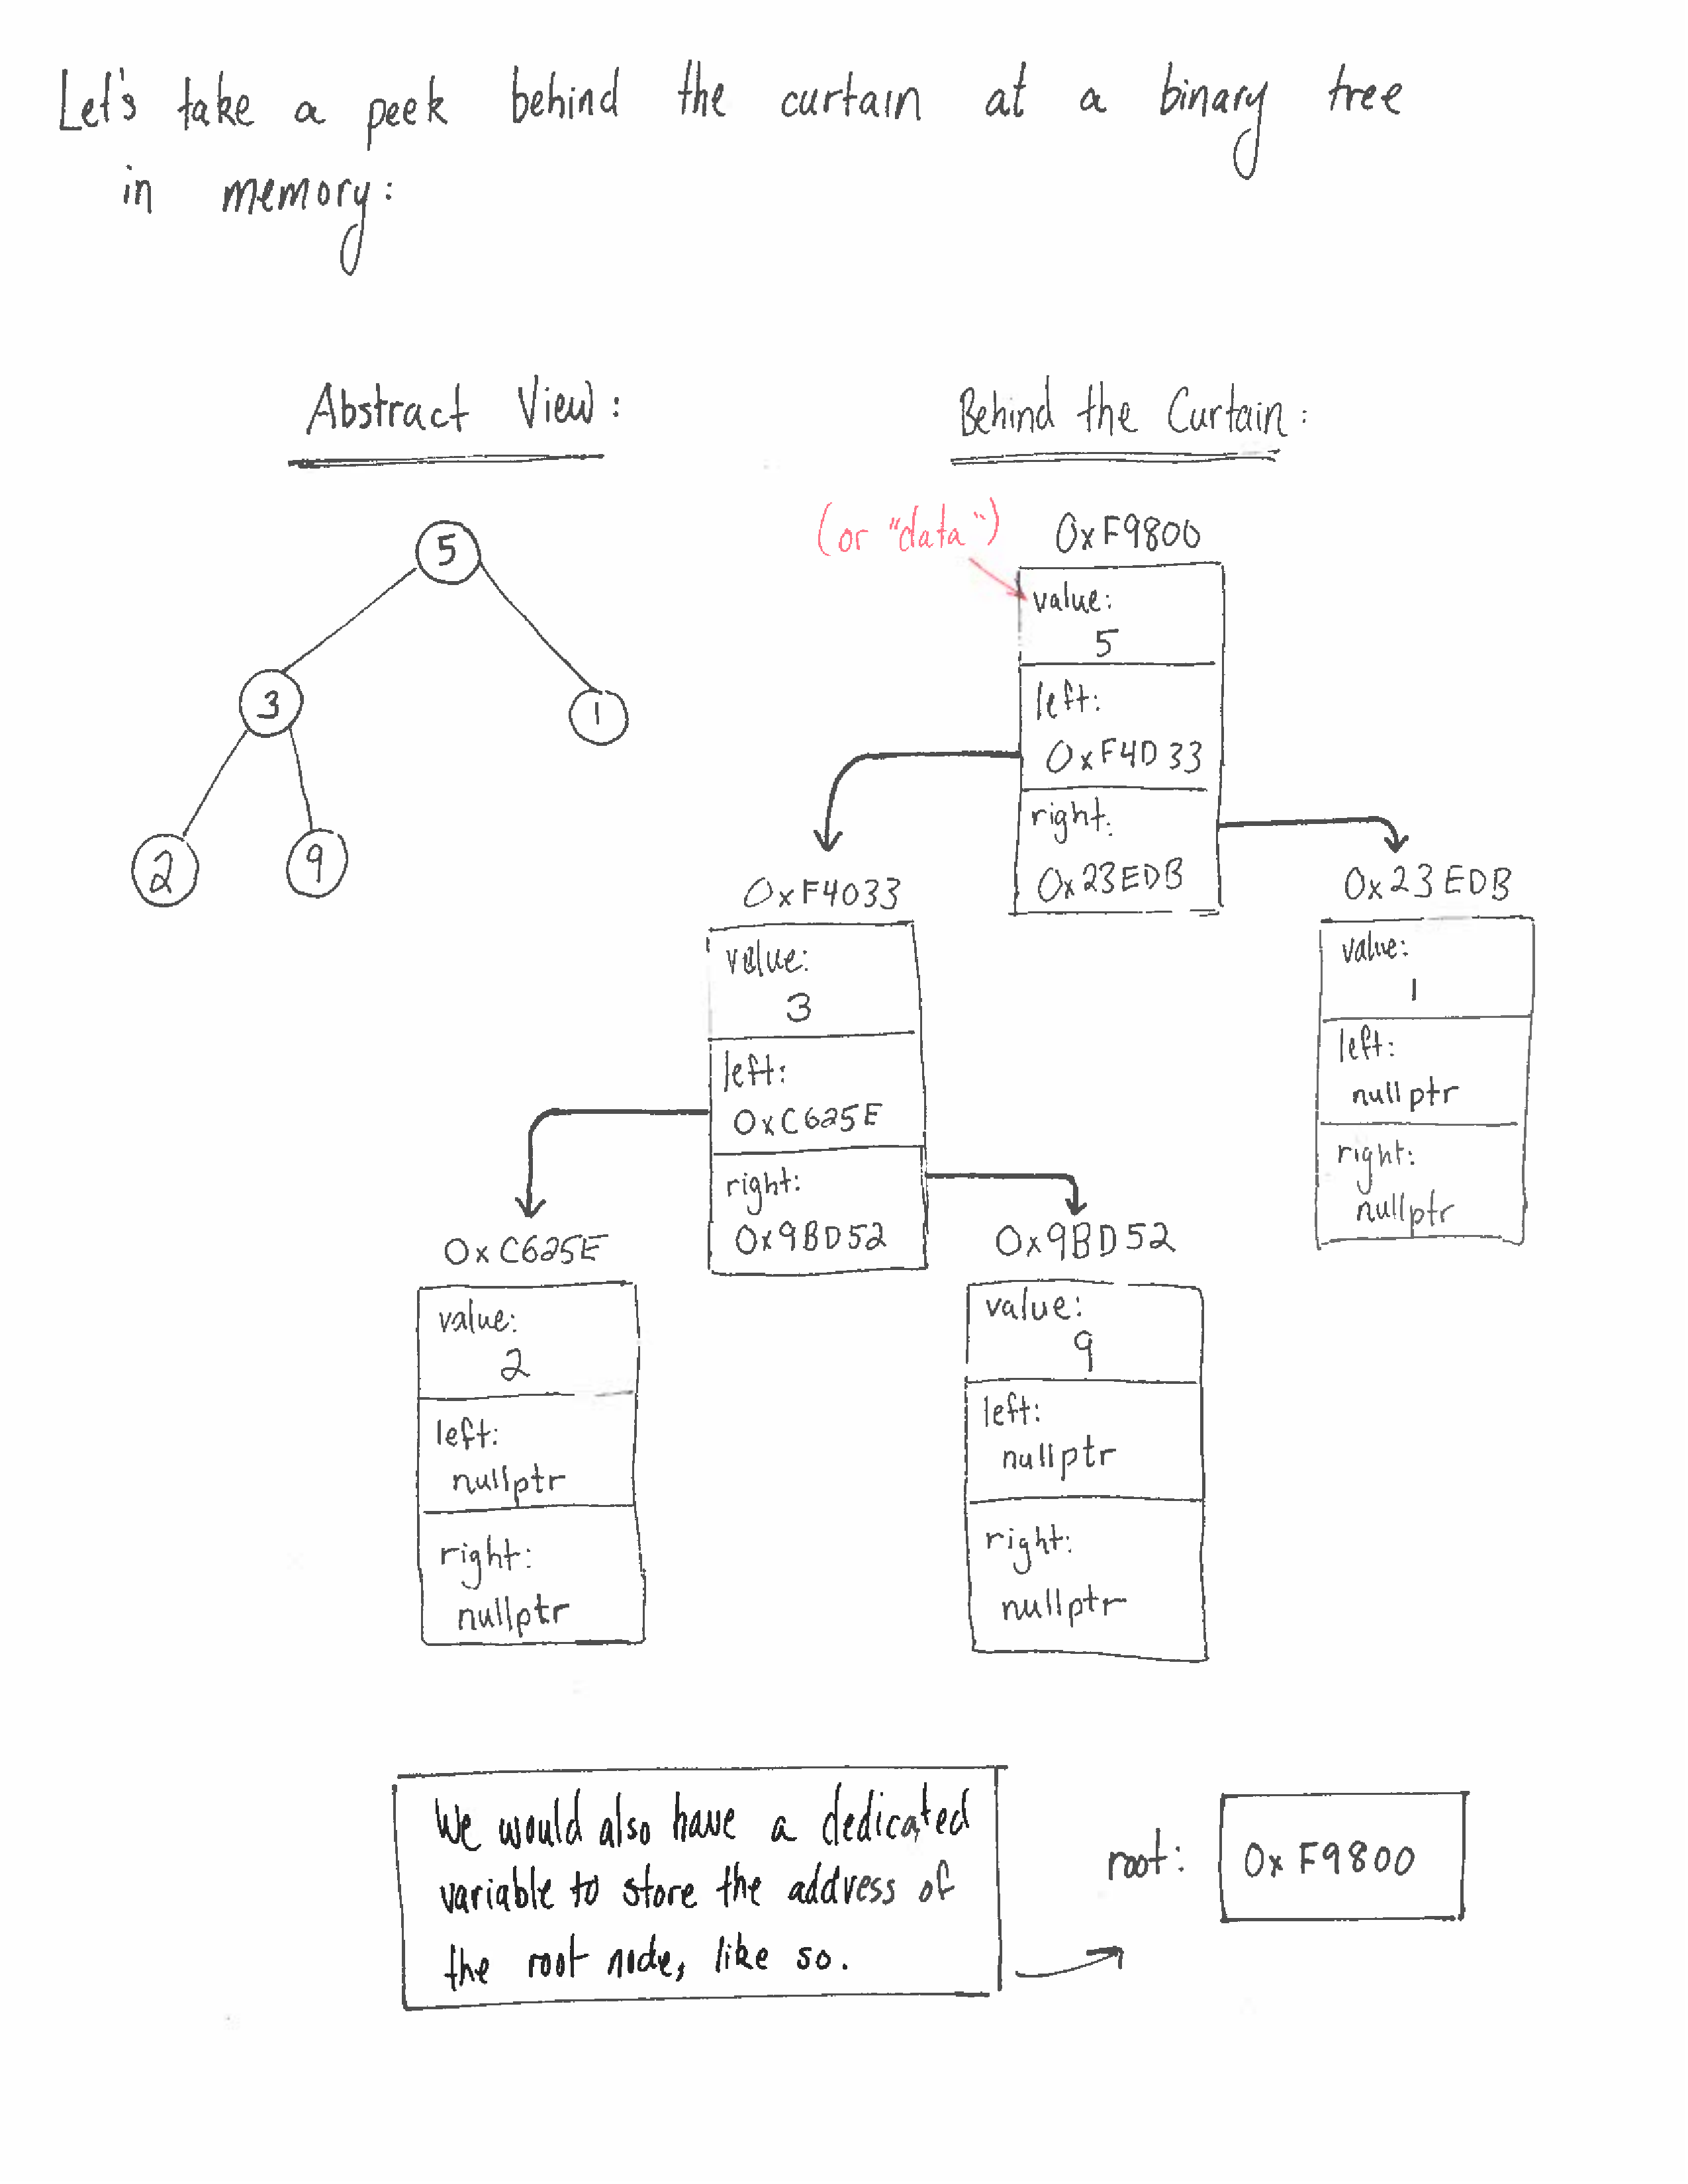 Let's take a peek behind the curtain at a binary tree
in memory:
Abstract View:
5
3
1
2
9
Behind the Curtain:
(or "data")
0xF9800
value:
5
left:
0xF4D33
right:
0x23EDB
0xF4033
value:
3
left:
0xC625E
right:
0x9BD52
0x23EDB
value:
1
left:
nullptr
right:
nullptr
0xC625E
value:
2
left:
nullptr
right:
nullptr
0x9BD52
value:
9
left:
nullptr
right:
nullptr
We would also have a dedicated
variable to store the address of
the root node, like so.
root:
0xF9800